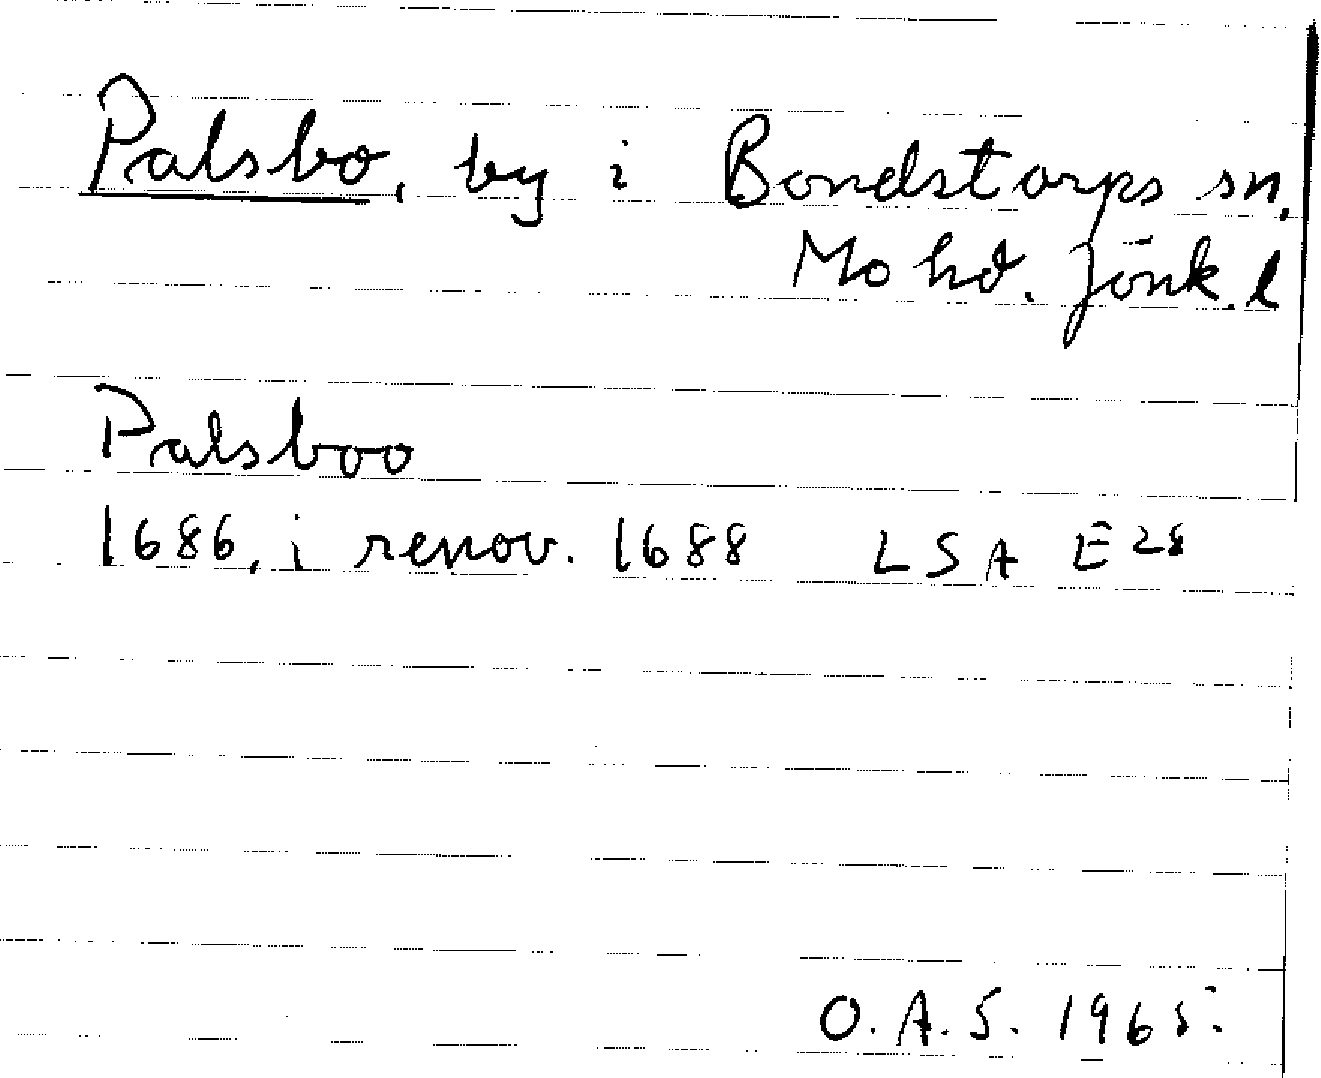 Palsbo, by i Bondstorps sn.
Mo hd. Jönk. l
Palsboo
1686, i renov. 1688 LSA E28
O.A.S. 1965.